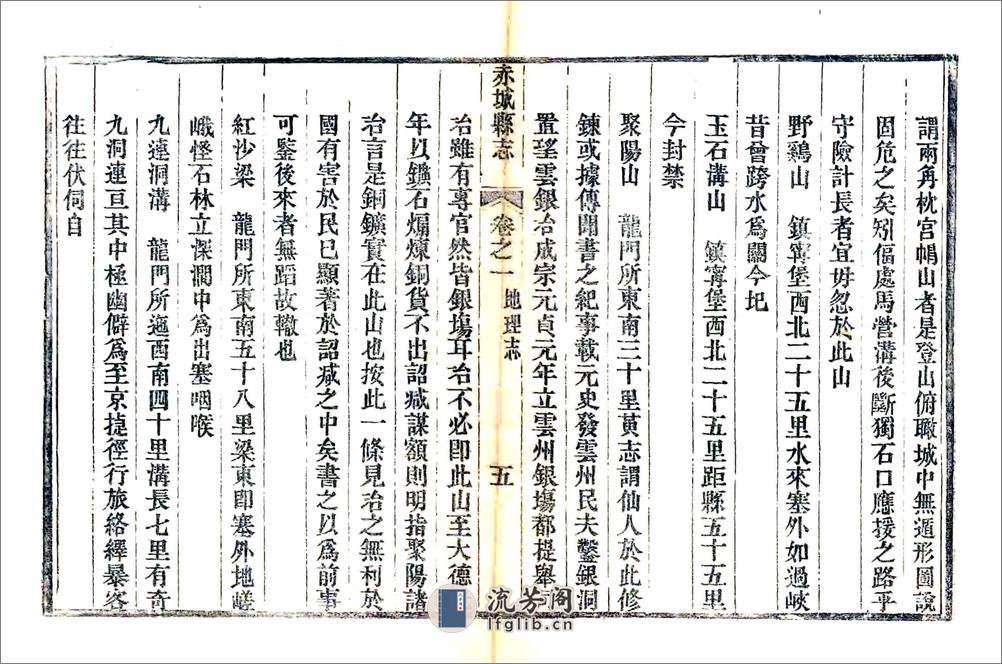 謂兩角枕宫幬山者是登山俯瞰城中無遁形圖說
固危之矣矧偪處馬營溝後斷獨石口應援之路乎
守險計長者宜毋忽於此山
野鷄山　鎮寧堡西北二十五里水來塞外如過峽
昔曾跨水爲關今圯
玉石溝山　鎮寧堡西北二十五里距縣五十五里
今封禁
聚陽山　龍門所東南三十里黄志謂仙人於此修
鍊或據傳聞書之紀事載元史發雲州民夫鑿銀洞
置望雲銀冶成宗元貞元年立雲州銀塲都提舉司
赤城縣志　卷之一　地理志　五
冶雖有專官然皆銀塲耳冶不必即此山至大德
年以鑛石煽煉銅貨不出詔减課額則明指聚陽諸
冶言是銅鑛實在此山也按此一條見冶之無柯於
國有害於民已顯著於詔减之中矣書之以爲前事
可鑒後來者無蹈故轍也
紅沙梁　龍門所東南五十八里梁東即塞外地嵯
峨怪石林立深澗中爲出塞咽喉
九連洞溝　龍門所迤西南四十里溝長七里有奇
九洞連亘其中極幽僻爲至京捷徑行旅絡繹暴客
往往伏伺自
流芳閣
lfglib.cn